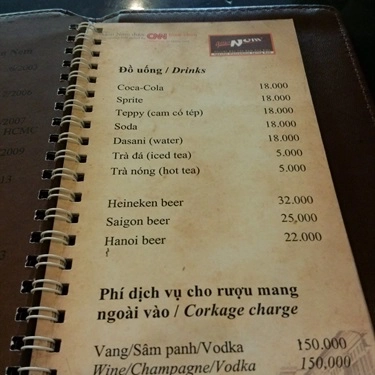 CNN
Nam
Đồ uống / Drinks
Coca-Cola 18.000
Sprite 18.000
Teppy (cam có tép) 18.000
Soda 18.000
Dasani (water) 18.000
Trà đá (iced tea) 5.000
Trà nóng (hot tea) 5.000
Heineken beer 32.000
Saigon beer 25,000
Hanoi beer 22.000
Phí dịch vụ cho rượu mang
ngoài vào / Corkage charge
Vang/Sâm panh/Vodka 150.000
Wine/Champagne/Vodka 150.000